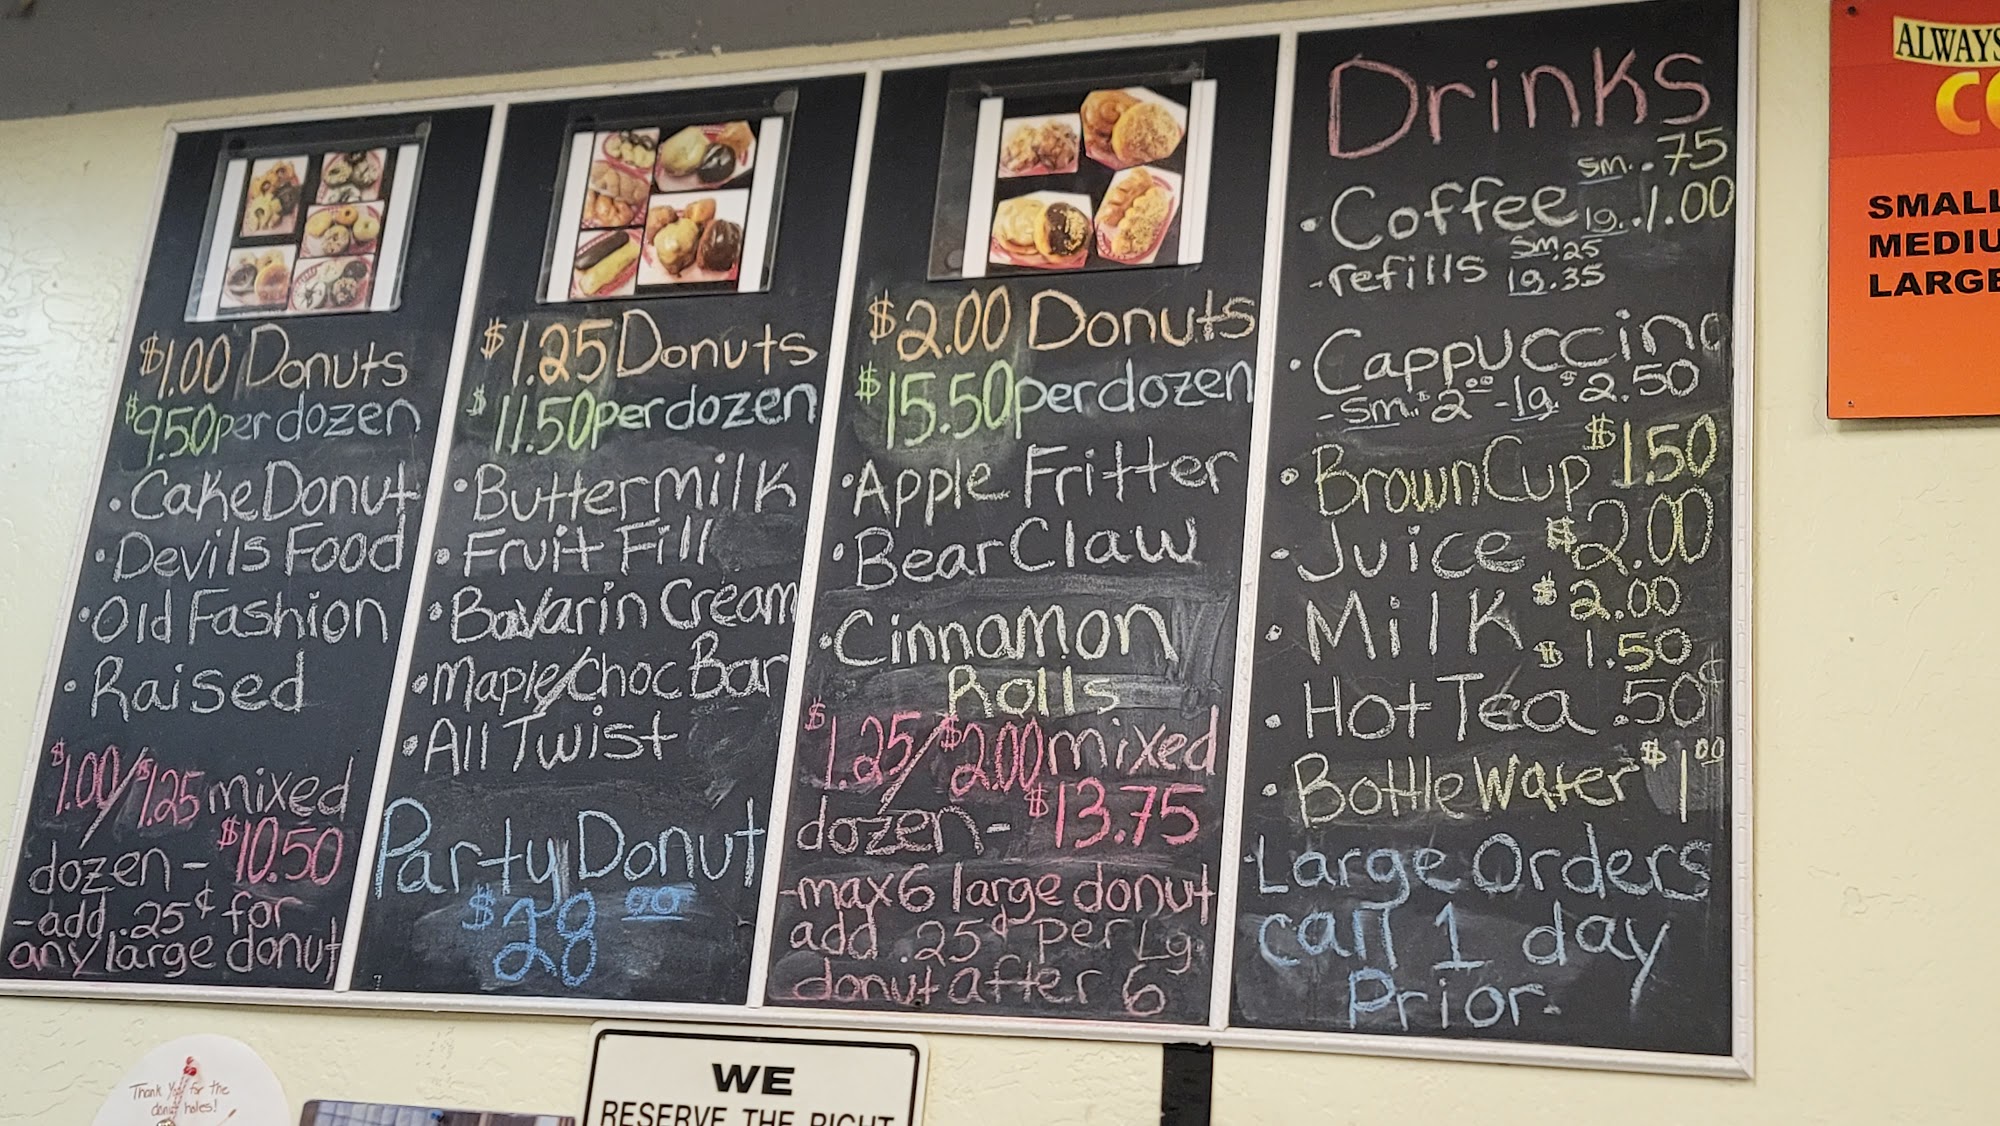 $1.00 Donuts
$9.50 per dozen
• Cake Donut
• Devils Food
• Old Fashion
• Raised
$1.00/$1.25 mixed
dozen - $10.50
- add .25¢ for
any large donut
$1.25 Donuts
$11.50 per dozen
• Buttermilk
• Fruit Fill
• Bavarin Cream
• Maple/Choc Bar
• All Twist
Party Donut
$28.00
$2.00 Donuts
$15.50 per dozen
• Apple Fritter
• Bear Claw
• Cinnamon
Rolls
$1.25/$2.00 mixed
dozen - $13.75
- max 6 large donut
add .25¢ per Lg.
donut after 6
Drinks
• Coffee sm. .75
lg. .1.00
- refills sm .25
lg .35
• Cappuccino
- sm. $2.00 - lg $2.50
• Brown Cup $1.50
• Juice $2.00
• Milk $2.00
$1.50
• Hot Tea .50¢
• Bottle Water $1.00
Large Orders
call 1 day
Prior.
ALWAYS
SMALL
LARGE
Thank You for the
donut holes!
WE
RESERVE THE RIGHT